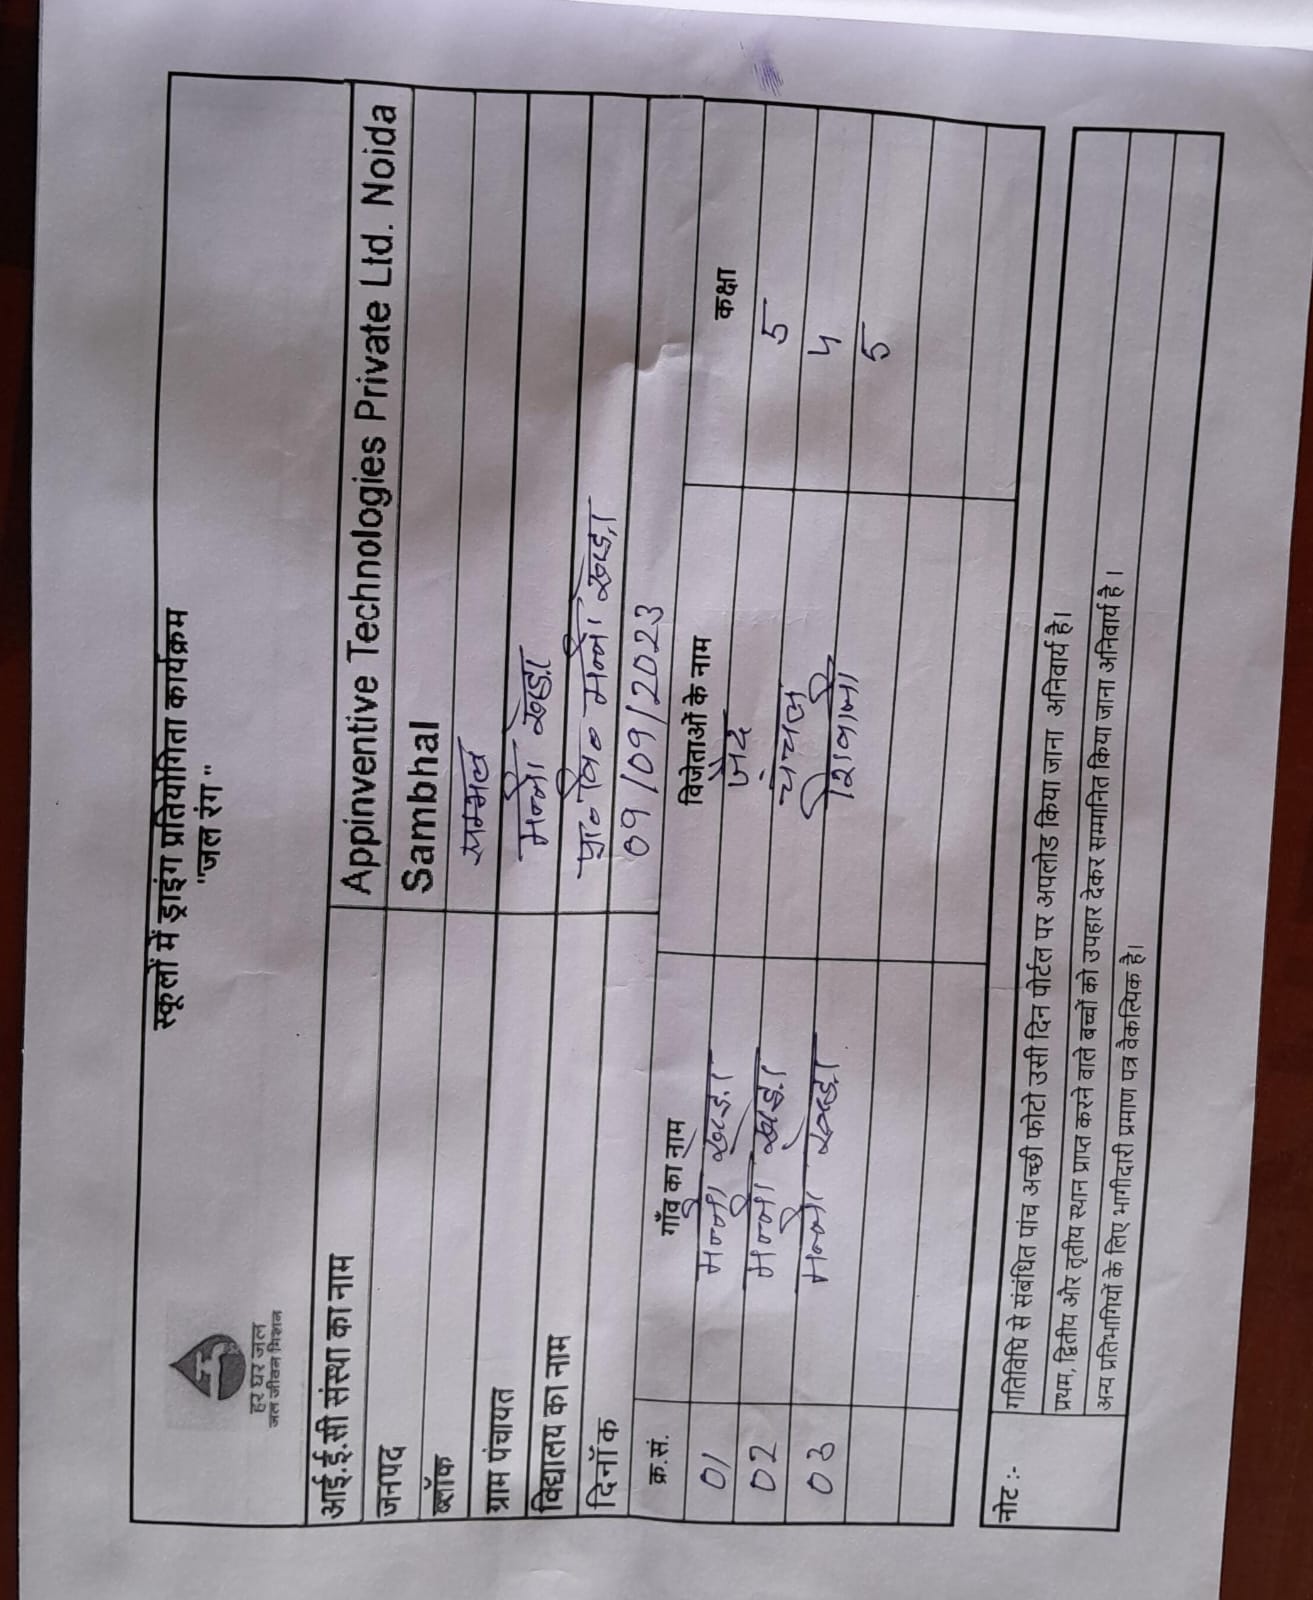 स्कूलों में ड्राइंग प्रतियोगिता कार्यक्रम
"जल रंग"
हर घर जल
जल जीवन मिशन
आई.ई.सी संस्था का नाम Appinventive Technologies Private Ltd. Noida
जनपद Sambhal
ब्लॉक सम्भल
ग्राम पंचायत मन्नी खेड़ा
विद्यालय का नाम प्रा० वि० मन्नी खेड़ा
दिनॉक 09/09/2023
क्र.सं. गाँव का नाम विजेताओं के नाम कक्षा
01 मन्नी खेड़ा जैद 5
02 मन्नी खेड़ा चंचल 4
03 मन्नी खेड़ा शिवानी 5
नोट :- गतिविधि से संबंधित पांच अच्छी फोटो उसी दिन पोर्टल पर अपलोड किया जाना अनिवार्य है।
प्रथम, द्वितीय और तृतीय स्थान प्राप्त करने वाले बच्चों को उपहार देकर सम्मानित किया जाना अनिवार्य है।
अन्य प्रतिभागियों के लिए भागीदारी प्रमाण पत्र वैकल्पिक है।